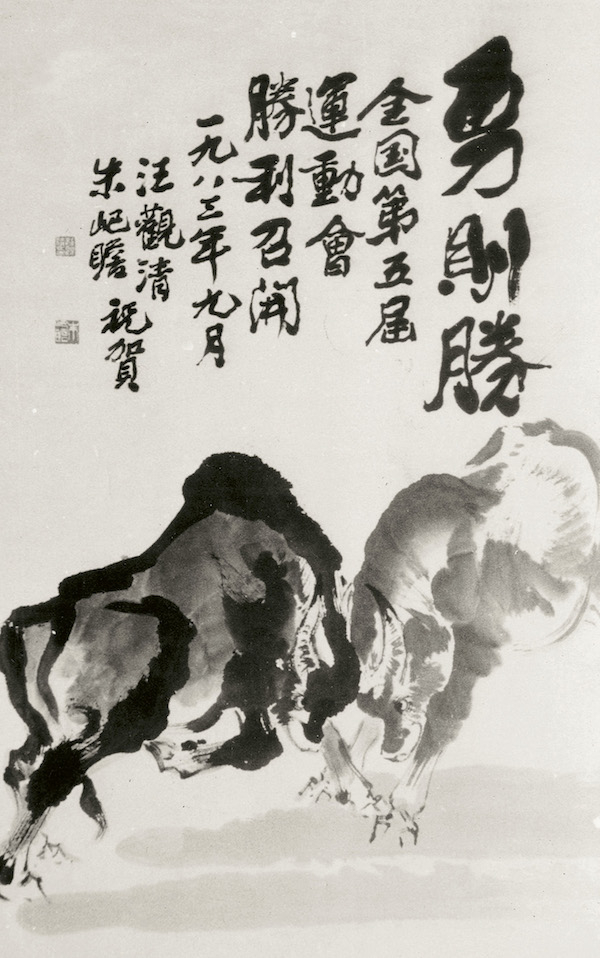 勇則勝
全国第五届
運動會
勝利召開
一九八三年九月
汪觀清
朱屺瞻 祝賀